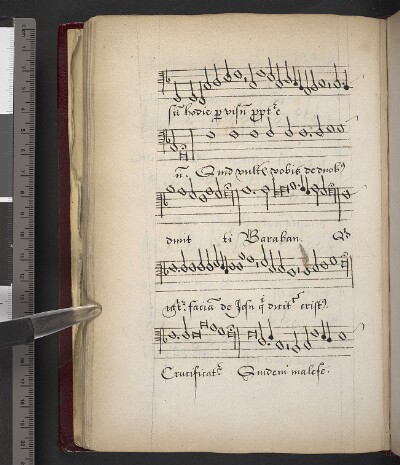 sū hodie p visū ppt^r e
n̄. Quid vult^s vobis de duob⁹
dimit ti Baraban. Qd
igit^r faciā de Jesu q̄ dicit^r crist⁹
Crucificat^r Quidem male fe.